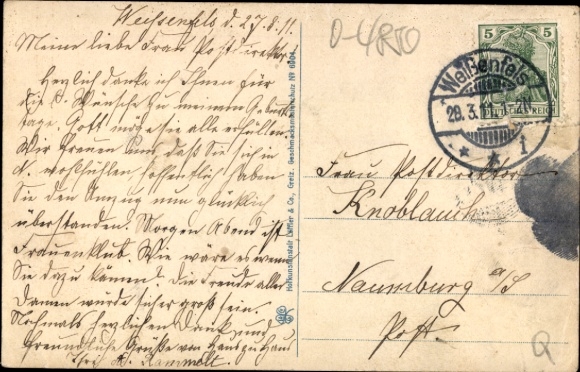 Weissenfels d. 27.8.11.
Meine liebe Frau Postdirektor
Herzlich danke ich Ihnen für
die l. Wünsche zu meinem Geburts
tage. Gott möge sie alle erfüllen.
Wir freuen uns, daß Sie sich in
N. wohlfühlen, hoffentlich haben
Sie den Umzug nun glücklich
überstanden. Morgen Abend ist
Frauenklub. Wie wäre es wenn
Sie dazu kämen? Die Freude aller
Damen würde sehr groß sein.
Nochmals herzlichen Dank und
freundliche Grüße von Haus zu Haus
Ihre
D-4850
5 5
DEUTSCHES REICH
Weißenfels
28.3.11.
* * 1
Frau Postdirektor
Knoblauch
Naumburg a/S
Post.
Q